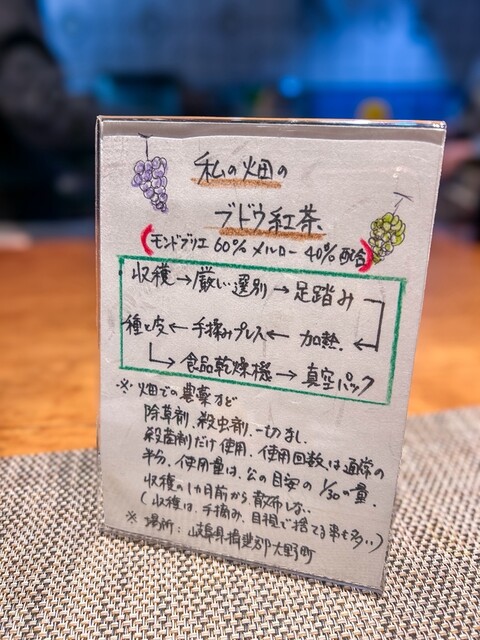 私の畑の
ブドウ紅茶
(モンドブリエ 60% メルロー 40% 配合)
収穫→厳い選別→足踏み
種と皮←手揉みプレス←加熱
→食品乾燥機→真空パック
※ 畑での農薬など
除草剤、殺虫剤、一切なし
殺菌剤だけ使用、使用回数は通常の
半分、使用量は、公の目安の1/30の量、
収穫の1カ月前から散布しない
(収穫は、手摘み、目視で捨てる事も多い)
※ 場所: 岐阜県揖斐郡大野町